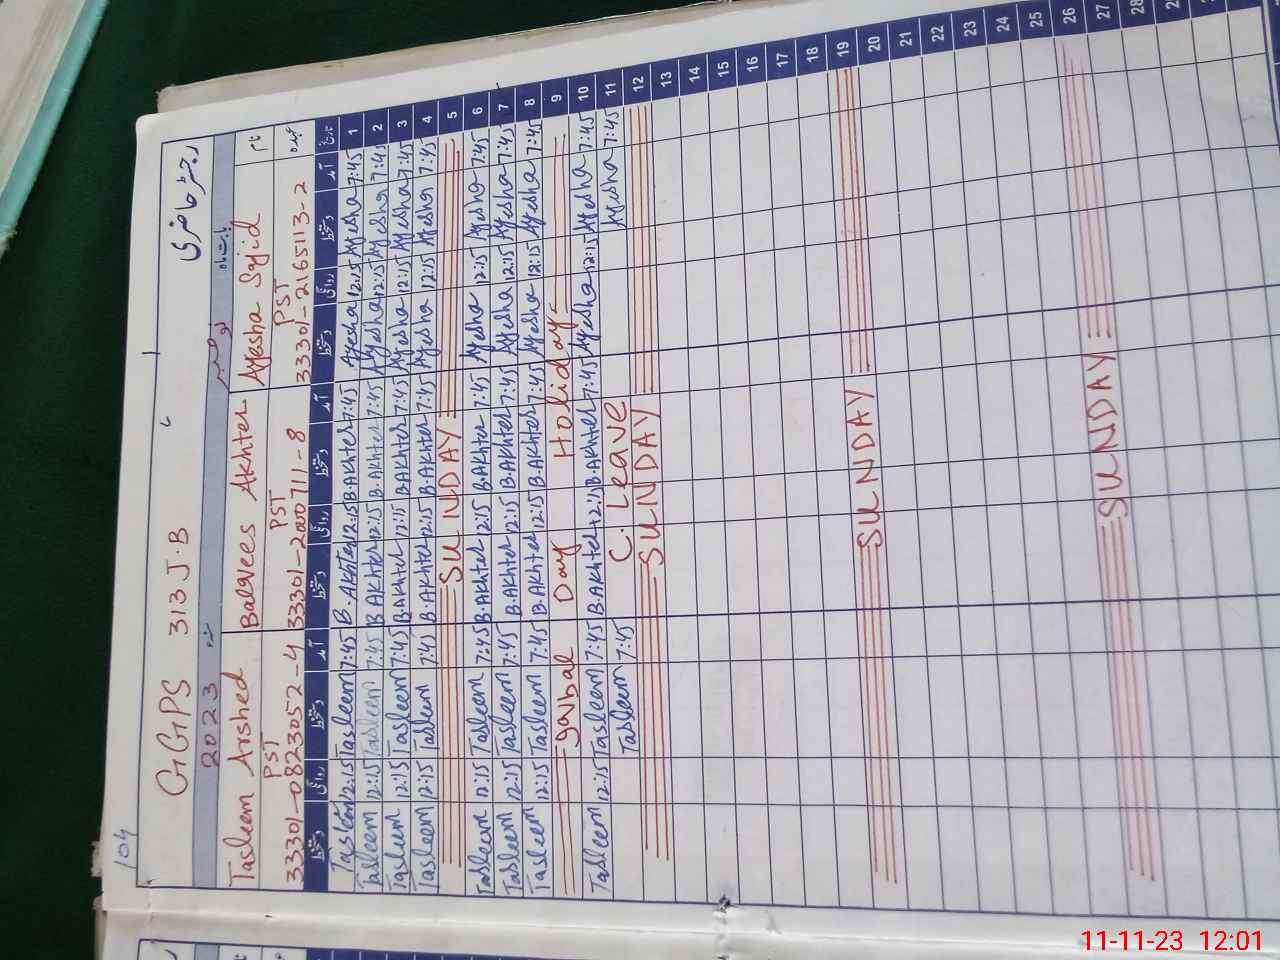 104
GGPS 313 J.B رجسٹر حاضری
2023 سنہ نومبر بابت ماہ
Tasleem Arshed Balqees Akhter Ayesha Sajid نام
PST PST PST عہدہ
33301-0823052-4 33301-2000711-8 33301-2165113-2
دستخط روانگی دستخط آمد دستخط روانگی دستخط آمد دستخط روانگی دستخط آمد تاریخ
Tasleem 12:15 Tasleem 7:45 B.Akhter 12:15 B.Akhter 7:45 Ayesha 12:15 Ayesha 7:45 1
Tasleem 12:15 Tasleem 7:45 B.Akhter 12:15 B.Akhter 7:45 Ayesha 12:15 Ayesha 7:45 2
Tasleem 12:15 Tasleem 7:45 B.Akhter 12:15 B.Akhter 7:45 Ayesha 12:15 Ayesha 7:45 3
Tasleem 12:15 Tasleem 7:45 B.Akhter 12:15 B.Akhter 7:45 Ayesha 12:15 Ayesha 7:45 4
SUNDAY 5
Tasleem 12:15 Tasleem 7:45 B.Akhter 12:15 B.Akhter 7:45 Ayesha 12:15 Ayesha 7:45 6
Tasleem 12:15 Tasleem 7:45 B.Akhter 12:15 B.Akhter 7:45 Ayesha 12:15 Ayesha 7:45 7
Tasleem 12:15 Tasleem 7:45 B.Akhter 12:15 B.Akhter 7:45 Ayesha 12:15 Ayesha 7:45 8
Day Holiday 9
Tasleem 12:15 Tasleem 7:45 B.Akhter 12:15 B.Akhter 7:45 Ayesha 12:15 Ayesha 7:45 10
Tasleem 7:45 C. Leave Ayesha 7:45 11
SUNDAY 12
13
14
15
16
17
18
SUNDAY 19
20
21
22
23
24
25
SUNDAY 26
27
28
11-11-23 12:01